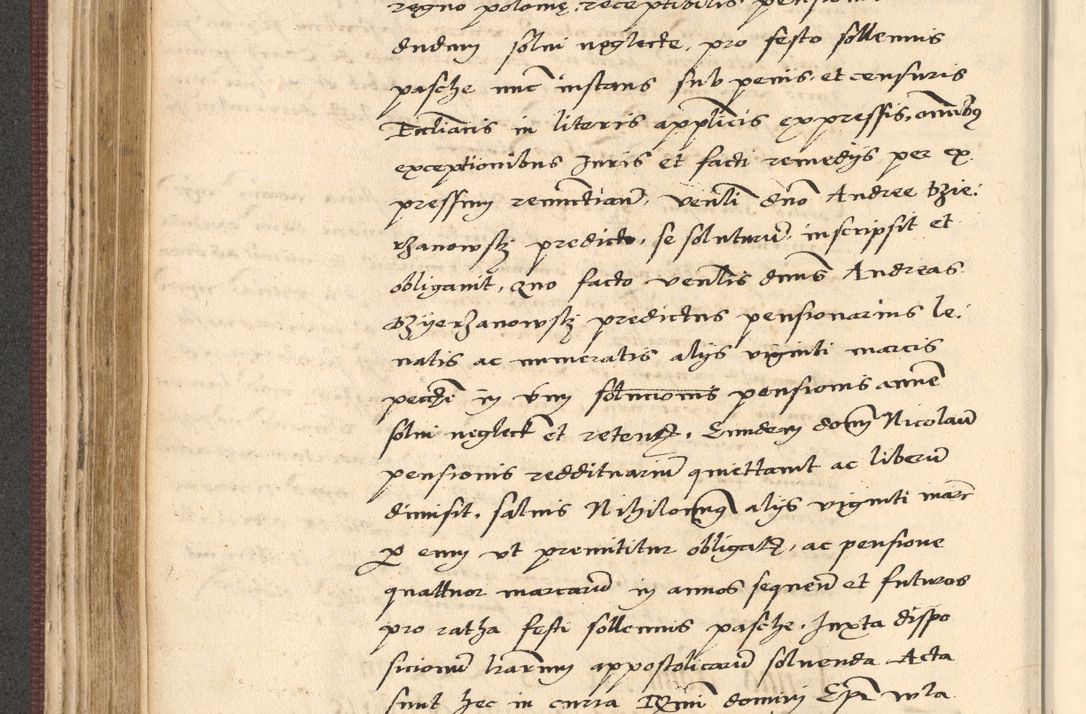 regno polonię, receptibilis pension
dudum solui neglecte, pro festo sollennis
pasche nunc instans sub penis et censuris
Eccliasticis in literis applicis expressis, omnibq
exceptionibus Juris et facti remedijs per ex
pressum renunctian, venli dno Andree Dzie:
rzanowskj predicto, se soluturu inscripsit et
obligauit, Quo facto venlis dnus Andreas
Dzyerzanowskj predictus pensionarius le:
uatis ac numeratis alijs viginti marcis
pecche in vim solucionis pensionis annue
solui neglect et retent, Eundem domin Nicolau
pensionis reddituariu quiettauit ac liberu
dimisit, saluis Nihilominq alijs viginti marc
p eum vt premittitur obligat, ac pensione
quattuor marcaru in annos sequen et futuros
pro ratha festi sollennis pasche, Juxta dispo
sicionem lrarum appostolicaru soluenda Acta
sunt hec in curia Rmi domini Epi